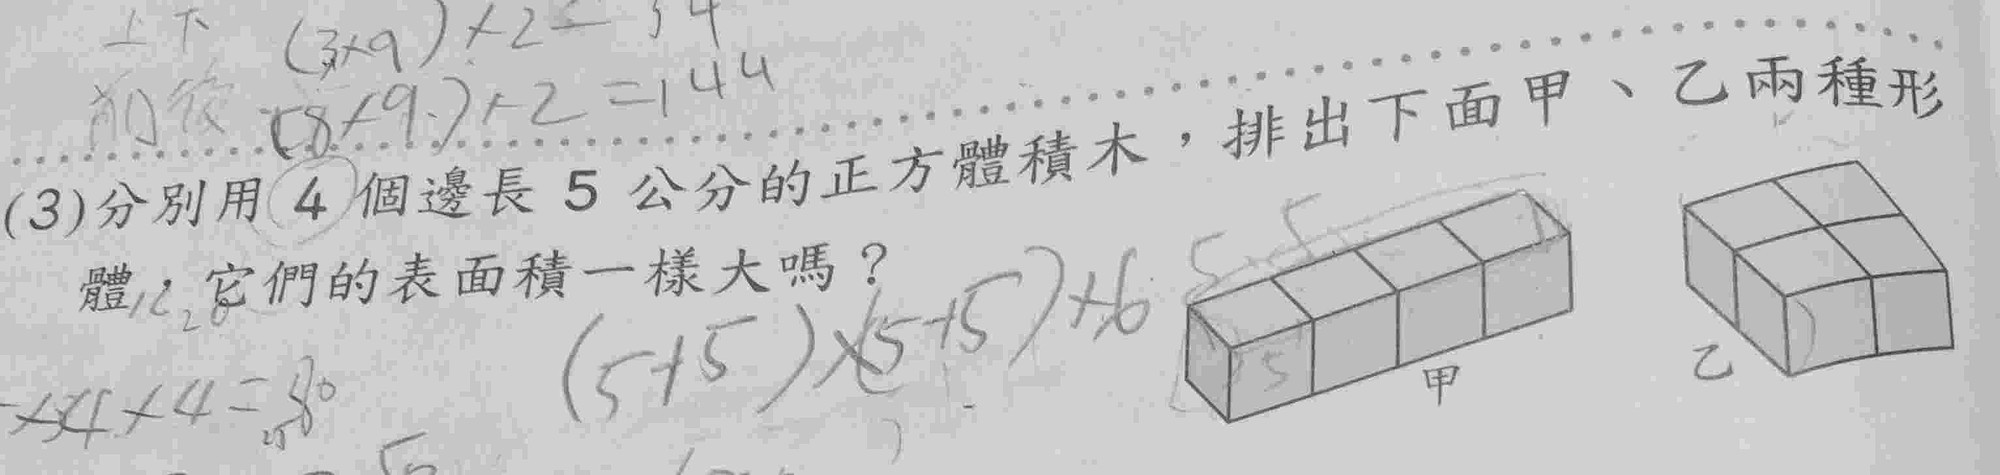 上下 (3×9)×2=54
前後 (8×9)×2=144
(3)分別用 4 個邊長 5 公分的正方體積木，排出下面甲、乙兩種形
體，它們的表面積一樣大嗎？
(5+5)×(5+5)×6
5 5
5
甲
乙